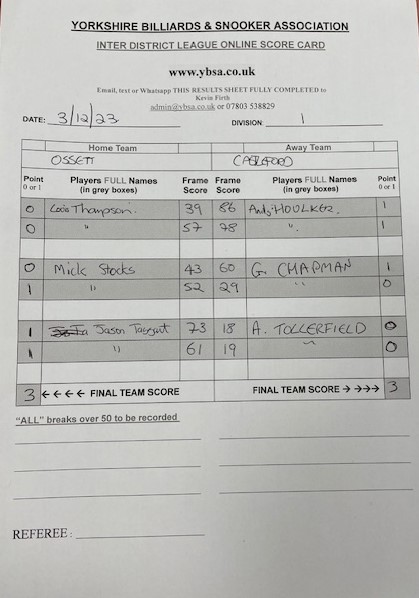 YORKSHIRE BILLIARDS & SNOOKER ASSOCIATION
INTER DISTRICT LEAGUE ONLINE SCORE CARD
www.ybsa.co.uk
Email, text or Whatsapp THIS RESULTS SHEET FULLY COMPLETED to
Kevin Firth
admin@ybsa.co.uk or 07803 538829
DATE: 3/12/23 DIVISION: 1
Home Team Away Team
OSSETT CASLEFORD
Point 0 or 1 Players FULL Names (in grey boxes) Frame Score Frame Score Players FULL Names (in grey boxes) Point 0 or 1
0 Thompson. 39 86 Andy HOULKER. 1
0 " 57 78 " 1
0 Mick Stocks 43 60 G. CHAPMAN 1
1 " 52 29 " 0
1 Jason Taggart 73 18 A. TOLLERFIELD 0
1 " 61 19 " 0
3 ←←←← FINAL TEAM SCORE FINAL TEAM SCORE →→→→ 3
"ALL" breaks over 50 to be recorded
REFEREE :